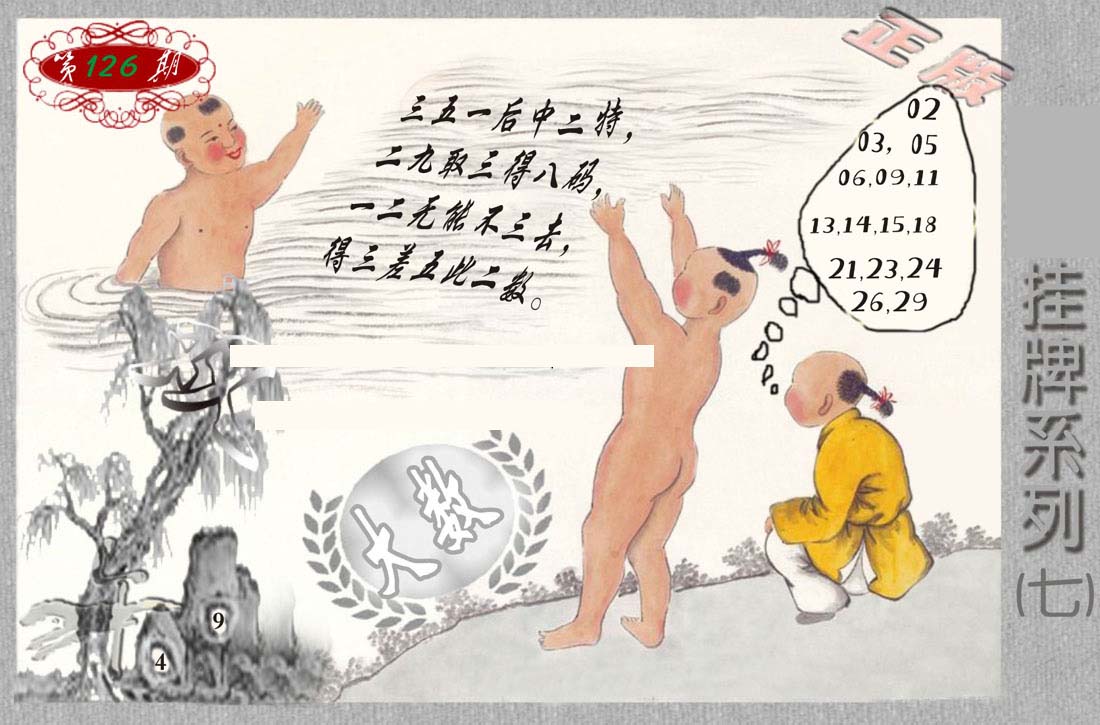 第126期
正版
三五一后中二特，
二九取三得八码，
一二无能不三去，
得三差五此二数。
02
03，05
06,09,11
13,14,15,18
21,23,24
26,29
挂牌系列(七)
大数
9
4